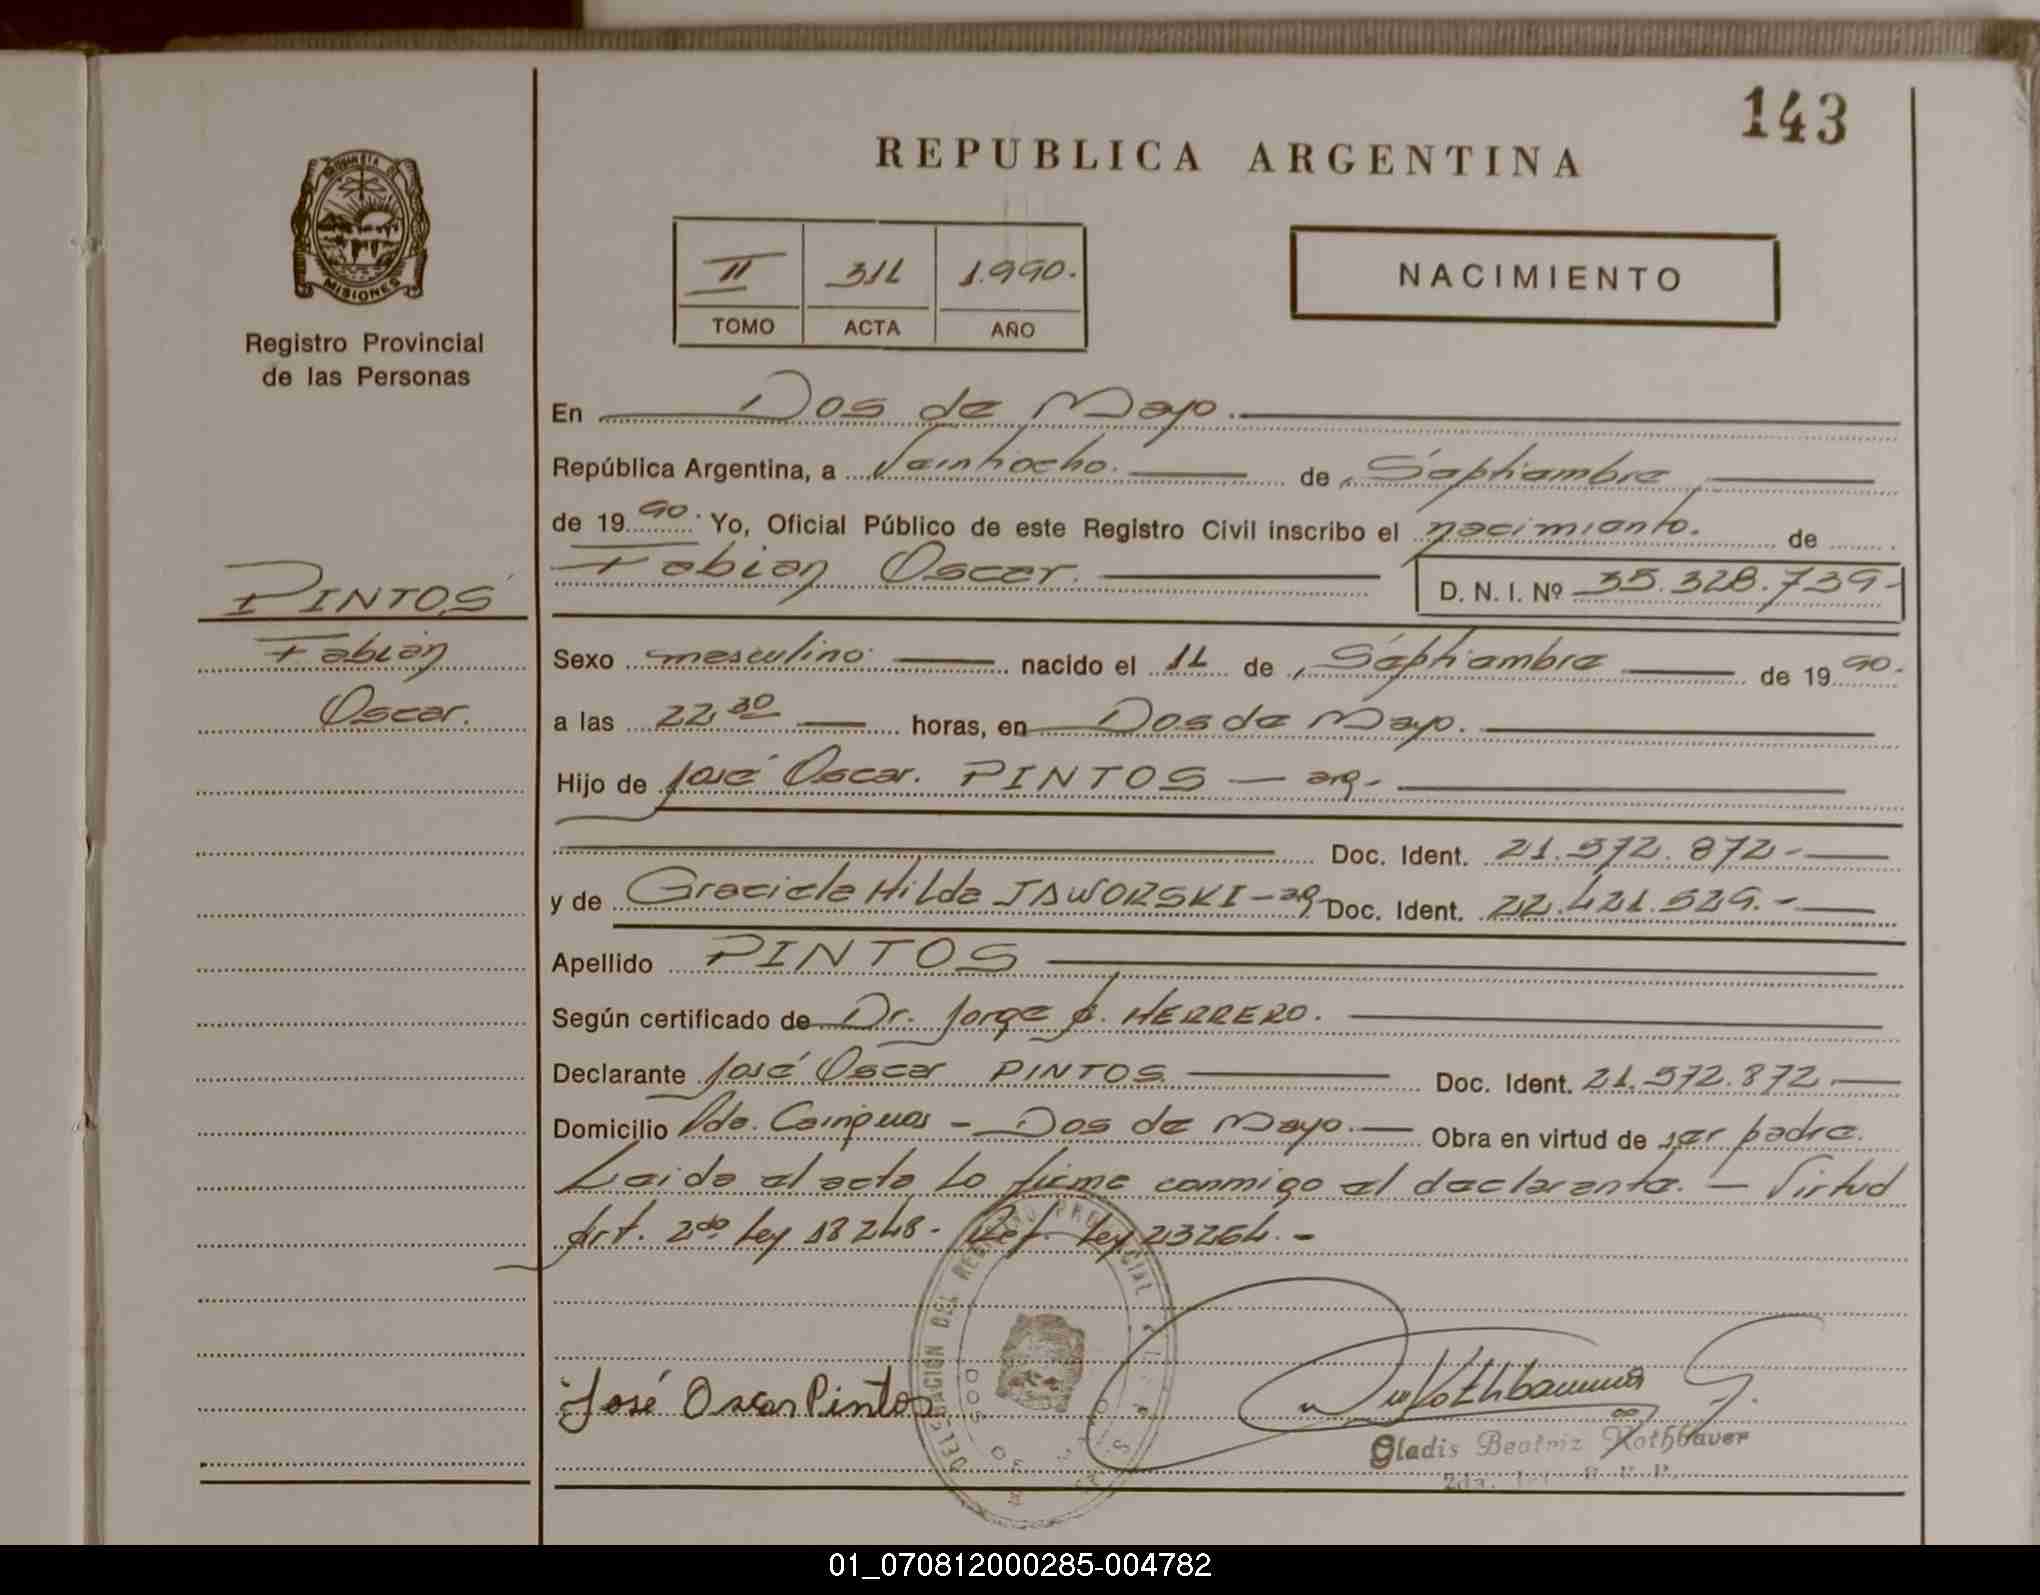 143
REPUBLICA ARGENTINA
PROVINCIA DE
MISIONES
Registro Provincial
de las Personas
II 314 1.990.
TOMO ACTA AÑO
NACIMIENTO
En Dos de Mayo.
República Argentina, a Veintiocho. de Septiembre
de 19 90. Yo, Oficial Público de este Registro Civil inscribo el nacimiento. de
Fabian Oscar. D. N. I. Nº 35.328.739-
PINTOS
Fabian
Oscar.
Sexo masculino. nacido el 14 de Septiembre de 19 90.
a las 22,30 horas, en Dos de Mayo.
Hijo de José Oscar. PINTOS — arg-
Doc. Ident. 21.572.872-
y de Graciela Hilda JAWORSKI - arg- Doc. Ident. 22.421.529.-
Apellido PINTOS
Según certificado de Dr. Jorge A. HERRERO.
Declarante José Oscar PINTOS Doc. Ident. 21.572.872
Domicilio Pdo. Cainguas - Dos de Mayo. Obra en virtud de ser padre.
Leida el acta Lo firma conmigo el declarante. — Virtud
Art. 2do Ley 18248- Ref. Ley 23264.-
DELEGACION DEL REGISTRO PROVINCIAL
DOS DE MAYO
José Oscar Pintos
Gladis Beatriz Rothbauer